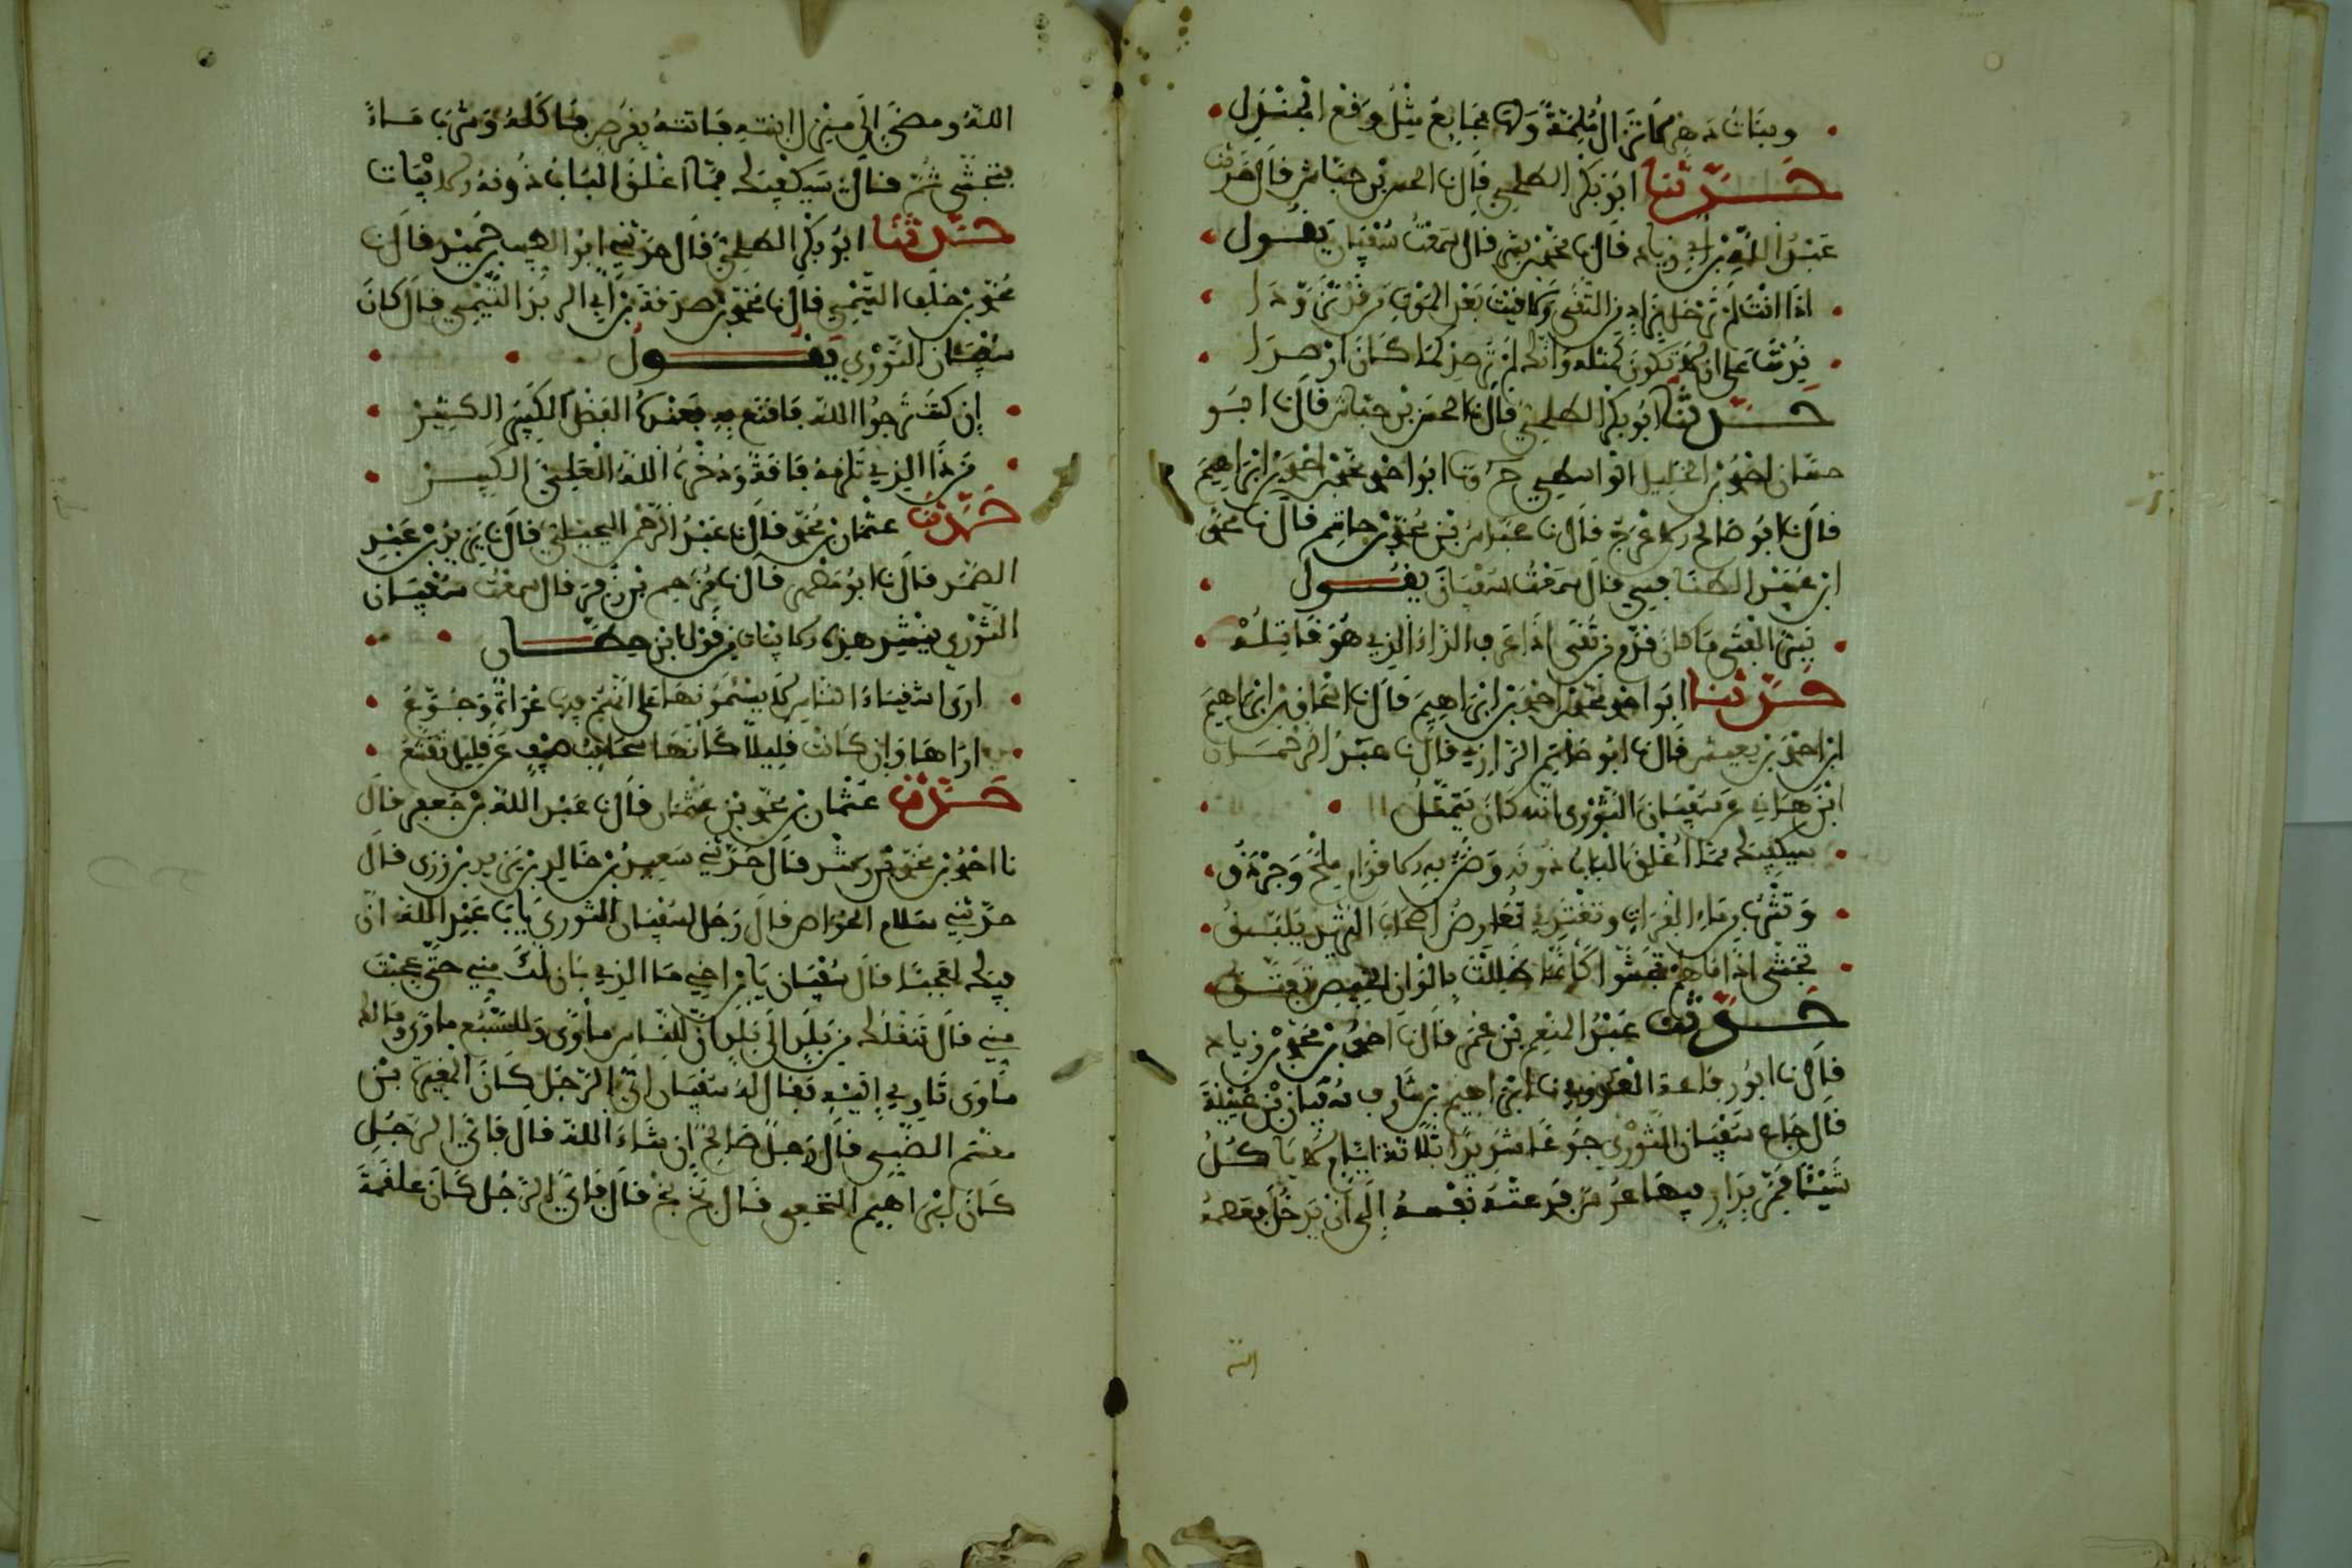 وبنات دهرك لا تزال ملمة ولها فجايع مثل وقع الجندل
حدثنا ابو بكر الطلحي قال نا الحسن بن حباش قال حدثنا
عبد الله بن ابي زياد قال نا محمد بن بشر قال سمعت سفيان يقول
اذا انت لم ترحل بزاد من التقى ولاقيت بعد الموت من قد تزودا
ندمت على ان لا تكون كمثله وانك لم ترصد كما كان ارصدا
حدثنا ابو بكر الطلحي قال نا الحسن بن حباش قال نا ابو
حسان احمد بن الخليل الواسطي ح ونا ابو احمد محمد بن احمد بن ابراهيم
قال نا ابو صالح الاعرج قال نا عبد الله بن محمد بن حاتم قال نا محمد
ابن عبيد الطنافسي قال سمعت سفيان يقول
يسر الفتى ما كان قدم من تقى اذا عرف الداء الذي هو قاتله
حدثنا ابو احمد محمد بن احمد بن ابراهيم قال نا اسحاق بن ابراهيم
ابن احمد بن يعيش قال نا ابو حاتم الرازي قال نا عبد الرحمان
ابن هاني عن سفيان الثوري انه كان يتمثل
سيكفيك مما اغلق الباب دونه وضن به الاقوام ملح وجردق
وتشرب من ماء الفرات وتغتدي تعارض اصحاب الثريد الملبق
تجشى اذا ما هم تجشوا كانما ظللت بالوان الخبيص تفتق
حدثنا عبد المنعم بن عمر قال نا احمد بن محمد بن زياد
قال نا ابو رفاعة العدوي نا ابراهيم بن بشار نا سفيان بن عيينة
قال جاع سفيان الثوري جوعا شديدا ثلاثة ايام لا ياكل
شيئا فمر بدار فيها عرس فدعته نفسه الى ان يدخل فعصمه
الله
الله ومضى الى منزل ابنته فاتته بقرص فاكله وشرب ماء
فتجشى ثم قال سيكفيك مما اغلق الباب دونه الابيات
حدثنا ابو بكر الطلحي قال حدثني ابو الطيب بن حميد قال نا
محمد بن خلف التيمي قال نا محمد بن صدقة بن ابي الربد التيمي قال كان
سفيان الثوري يقول
ان كنت ترجوا الله فاقنع به فعنده الفضل الكثير الكثير
من ذا الذي تلزمه فاقة وذخره الله العلي الكبير
حدثنا عثمان بن محمد قال نا عبد الرحمن قال نا يزيد بن عبد
الصمد قال نا ابو مسهر قال نا مزاحم بن زفر قال سمعت سفيان
الثوري ينشد هذه الابيات من قول ابن حطان
ارى اشقياء الناس لا يسئمونها على انهم فيها عراة وجوع
اراها وان كانت قليلا كانها سحابة صيف عن قليل تقشع
حدثنا عثمان بن محمد بن عثمان قال نا عبد الله بن جعفر قال
نا احمد بن محمد قال حدثني سعيد بن خالد بن يزيد بن زرى قال
حدثني سلام الخواص قال رجل لسفيان الثوري يا با عبد الله ان
فيك لعجبا قال سفيان يا بن اخي ما الذي بان لك مني حتى عجبت
مني قال تنقلك من بلد الى بلد ان للناس ماوى وللسبع ماوى ومالك
ماوى تاوي اليه فقال له سفيان اي الرجل كان المغيرة بن
مقسم الضبي قال رجل صالح ان شاء الله قال فاي الرجل
كان ابراهيم النخعي قال بخ بخ قال فاي الرجل كان علقمة